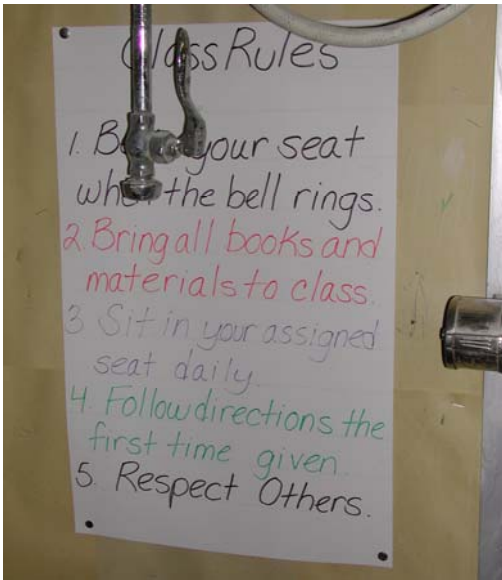 Class Rules
1. Be your seat
when the bell rings.
2. Bring all books and
materials to class.
3 Sit in your assigned
seat daily.
4. Follow directions the
first time given.
5. Respect Others.